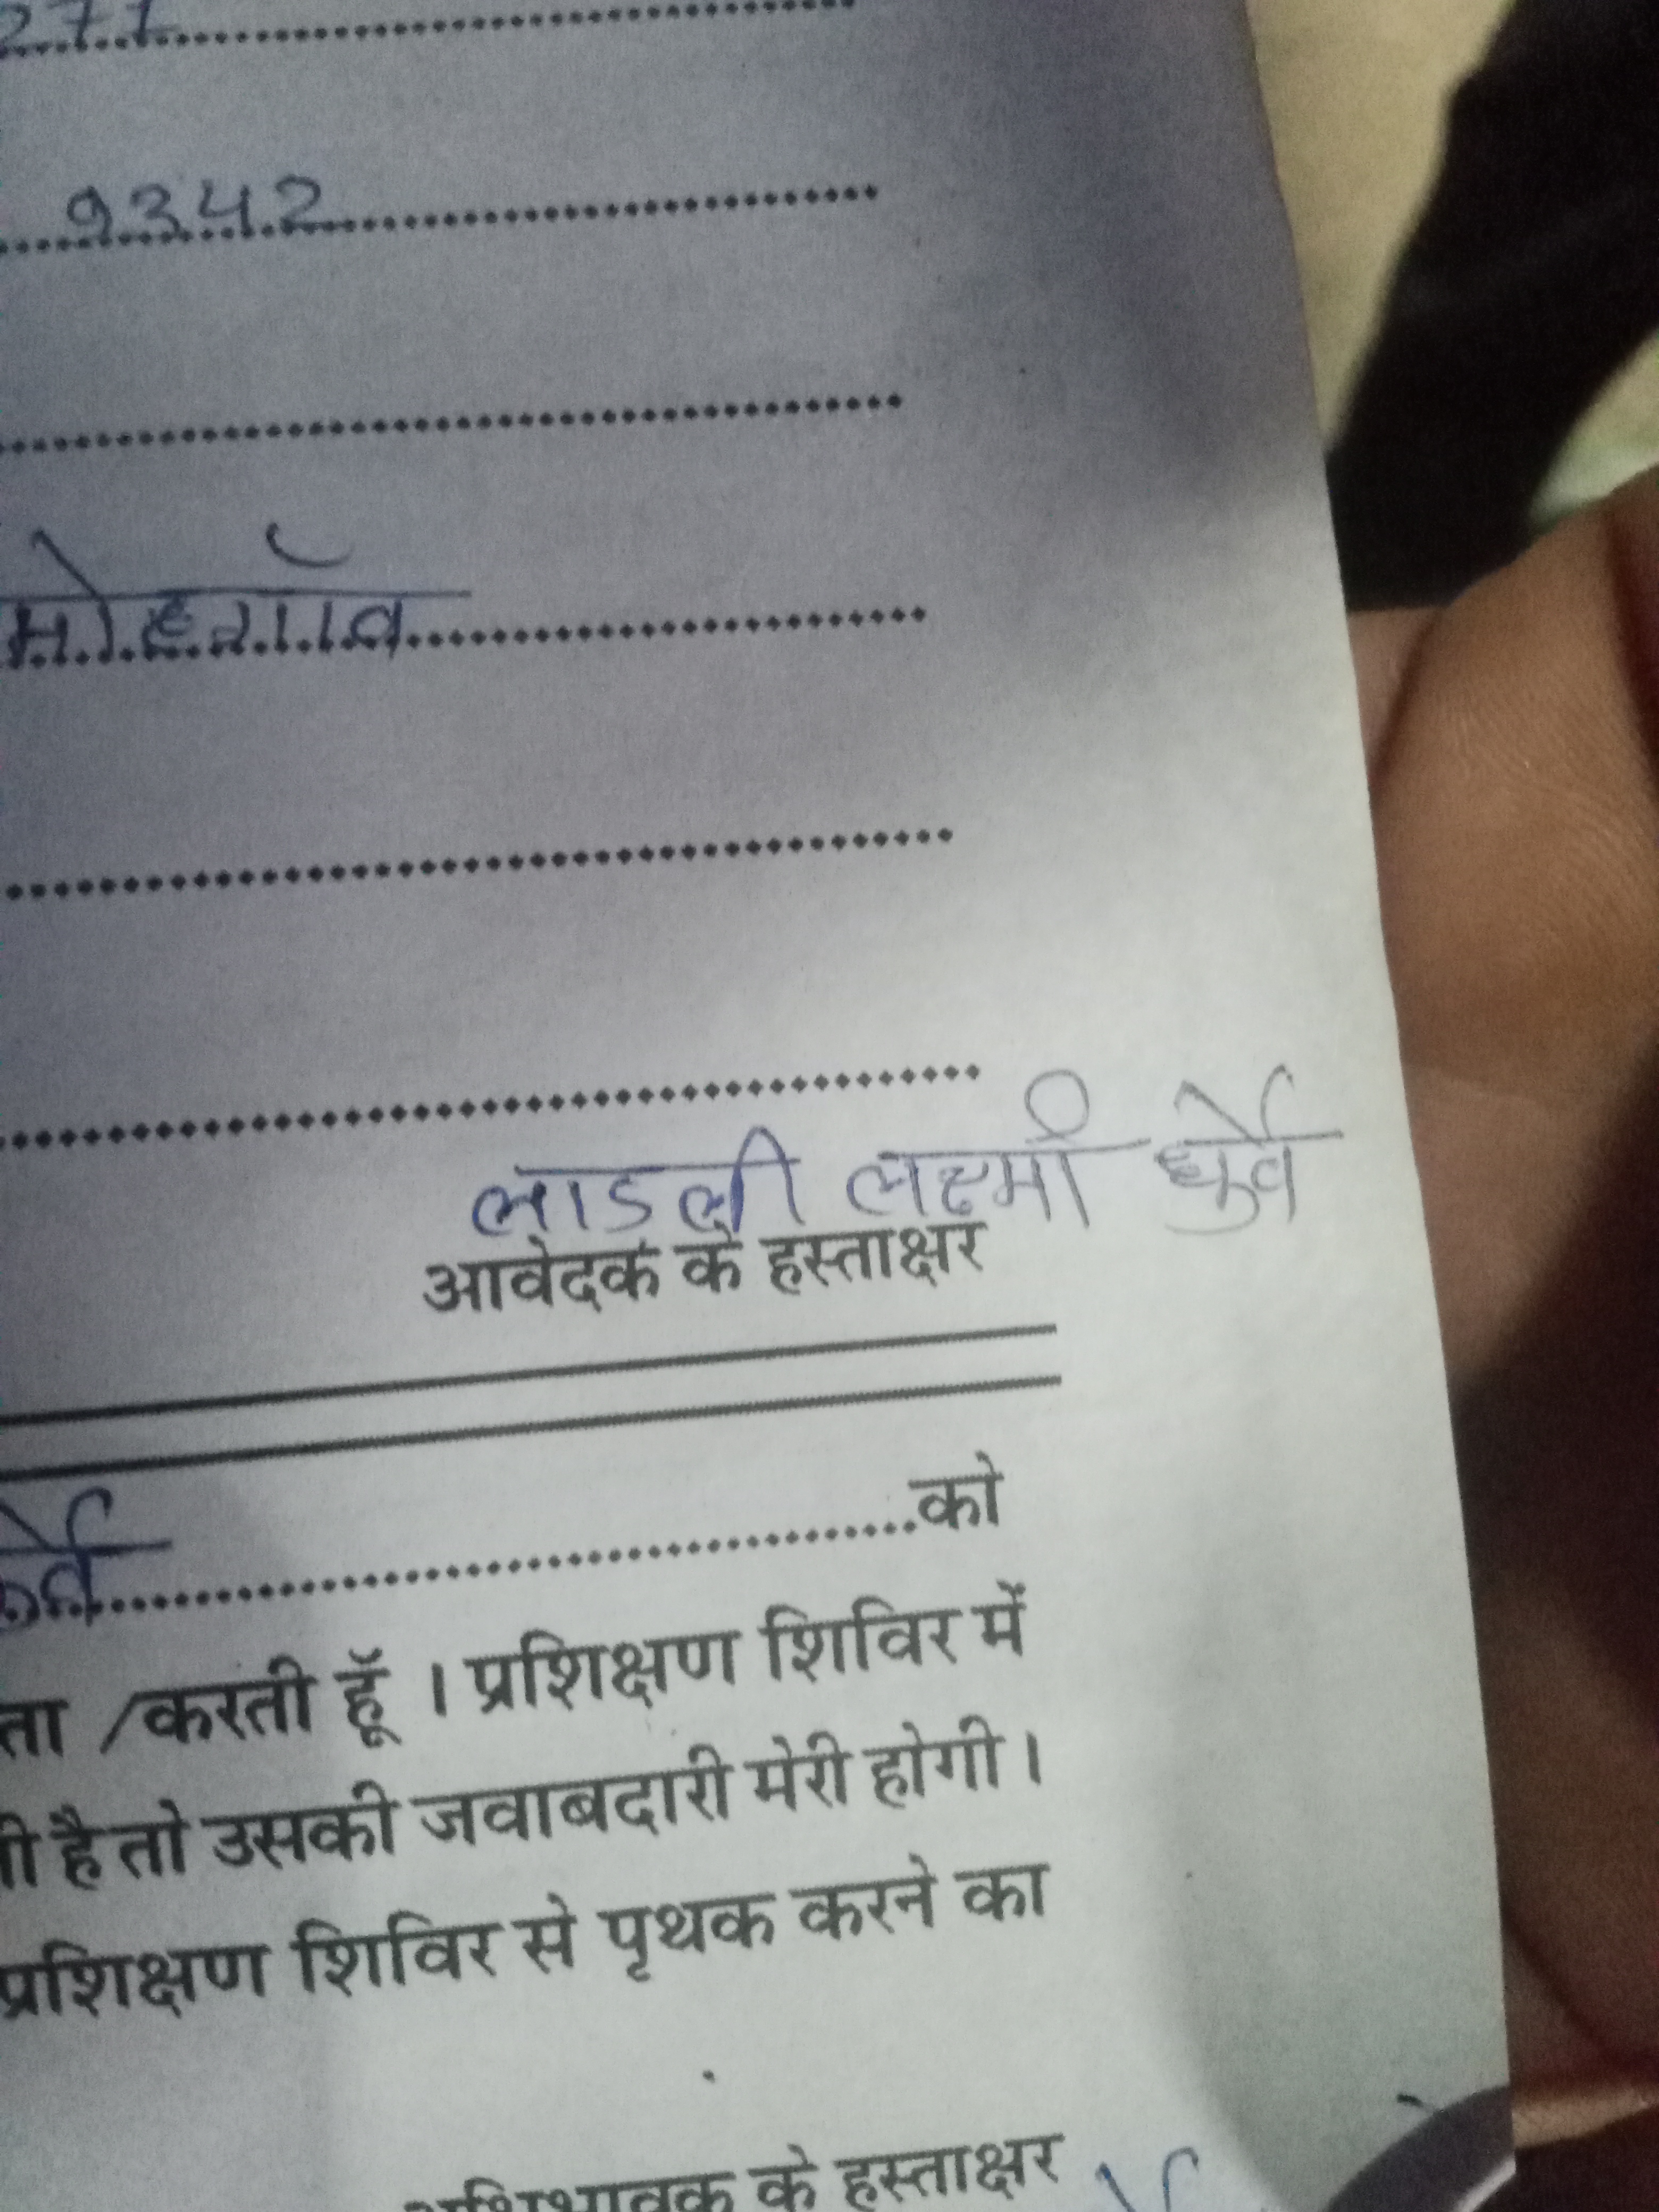 277
9342
मोहगॉव
लाडली लक्ष्मी धुर्वे
आवेदक के हस्ताक्षर
को
ता /करती हूॅ । प्रशिक्षण शिविर में
ी है तो उसकी जवाबदारी मेरी होगी ।
प्रशिक्षण शिविर से पृथक करने का
अभिभावक के हस्ताक्षर